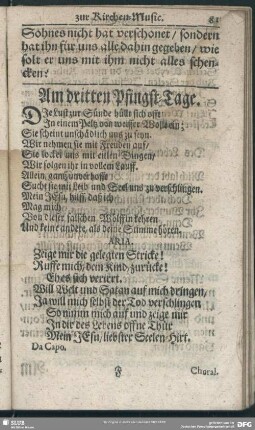 zur Kirchen-Music. 81
Sohnes nicht hat verschonet / sondern
hat ihn für uns alle dahin gegeben / wie
solt er uns mit ihm nicht alles schen-
cken?
Am dritten Pfingst-Tage.
Die Lust zur Sünde hüllt sich offt
In einem Peltz von weisser Wolle ein;
Sie scheint unschädlich uns zu seyn.
Wir nehmen sie mit Freuden auf /
Sie lockt uns mit eitlen Dingen /
Wir folgen ihr in vollem Lauff.
Allein, ganz unverhofft
Sucht sie mit Leib und Seel uns zu verschlingen.
Mein JEsu, hilff daß ich
Mag mich
Von dieser falschen Wölffin kehren
Und keine andere, als deine Stimme hören.
ARIA.
Zeige mir die gelegten Stricke!
Ruffe mich, dein Kind, zurücke!
Eh es sich verirrt.
Will Welt und Satan auf mich dringen,
Ja will mich selbst der Tod verschlingen
So nimm mich auf und zeige mir
In dir des Lebens offne Thür
Mein JEsu, liebster Seelen-Hirt.
Da Capo.
F Choral.
SLUB
DFG